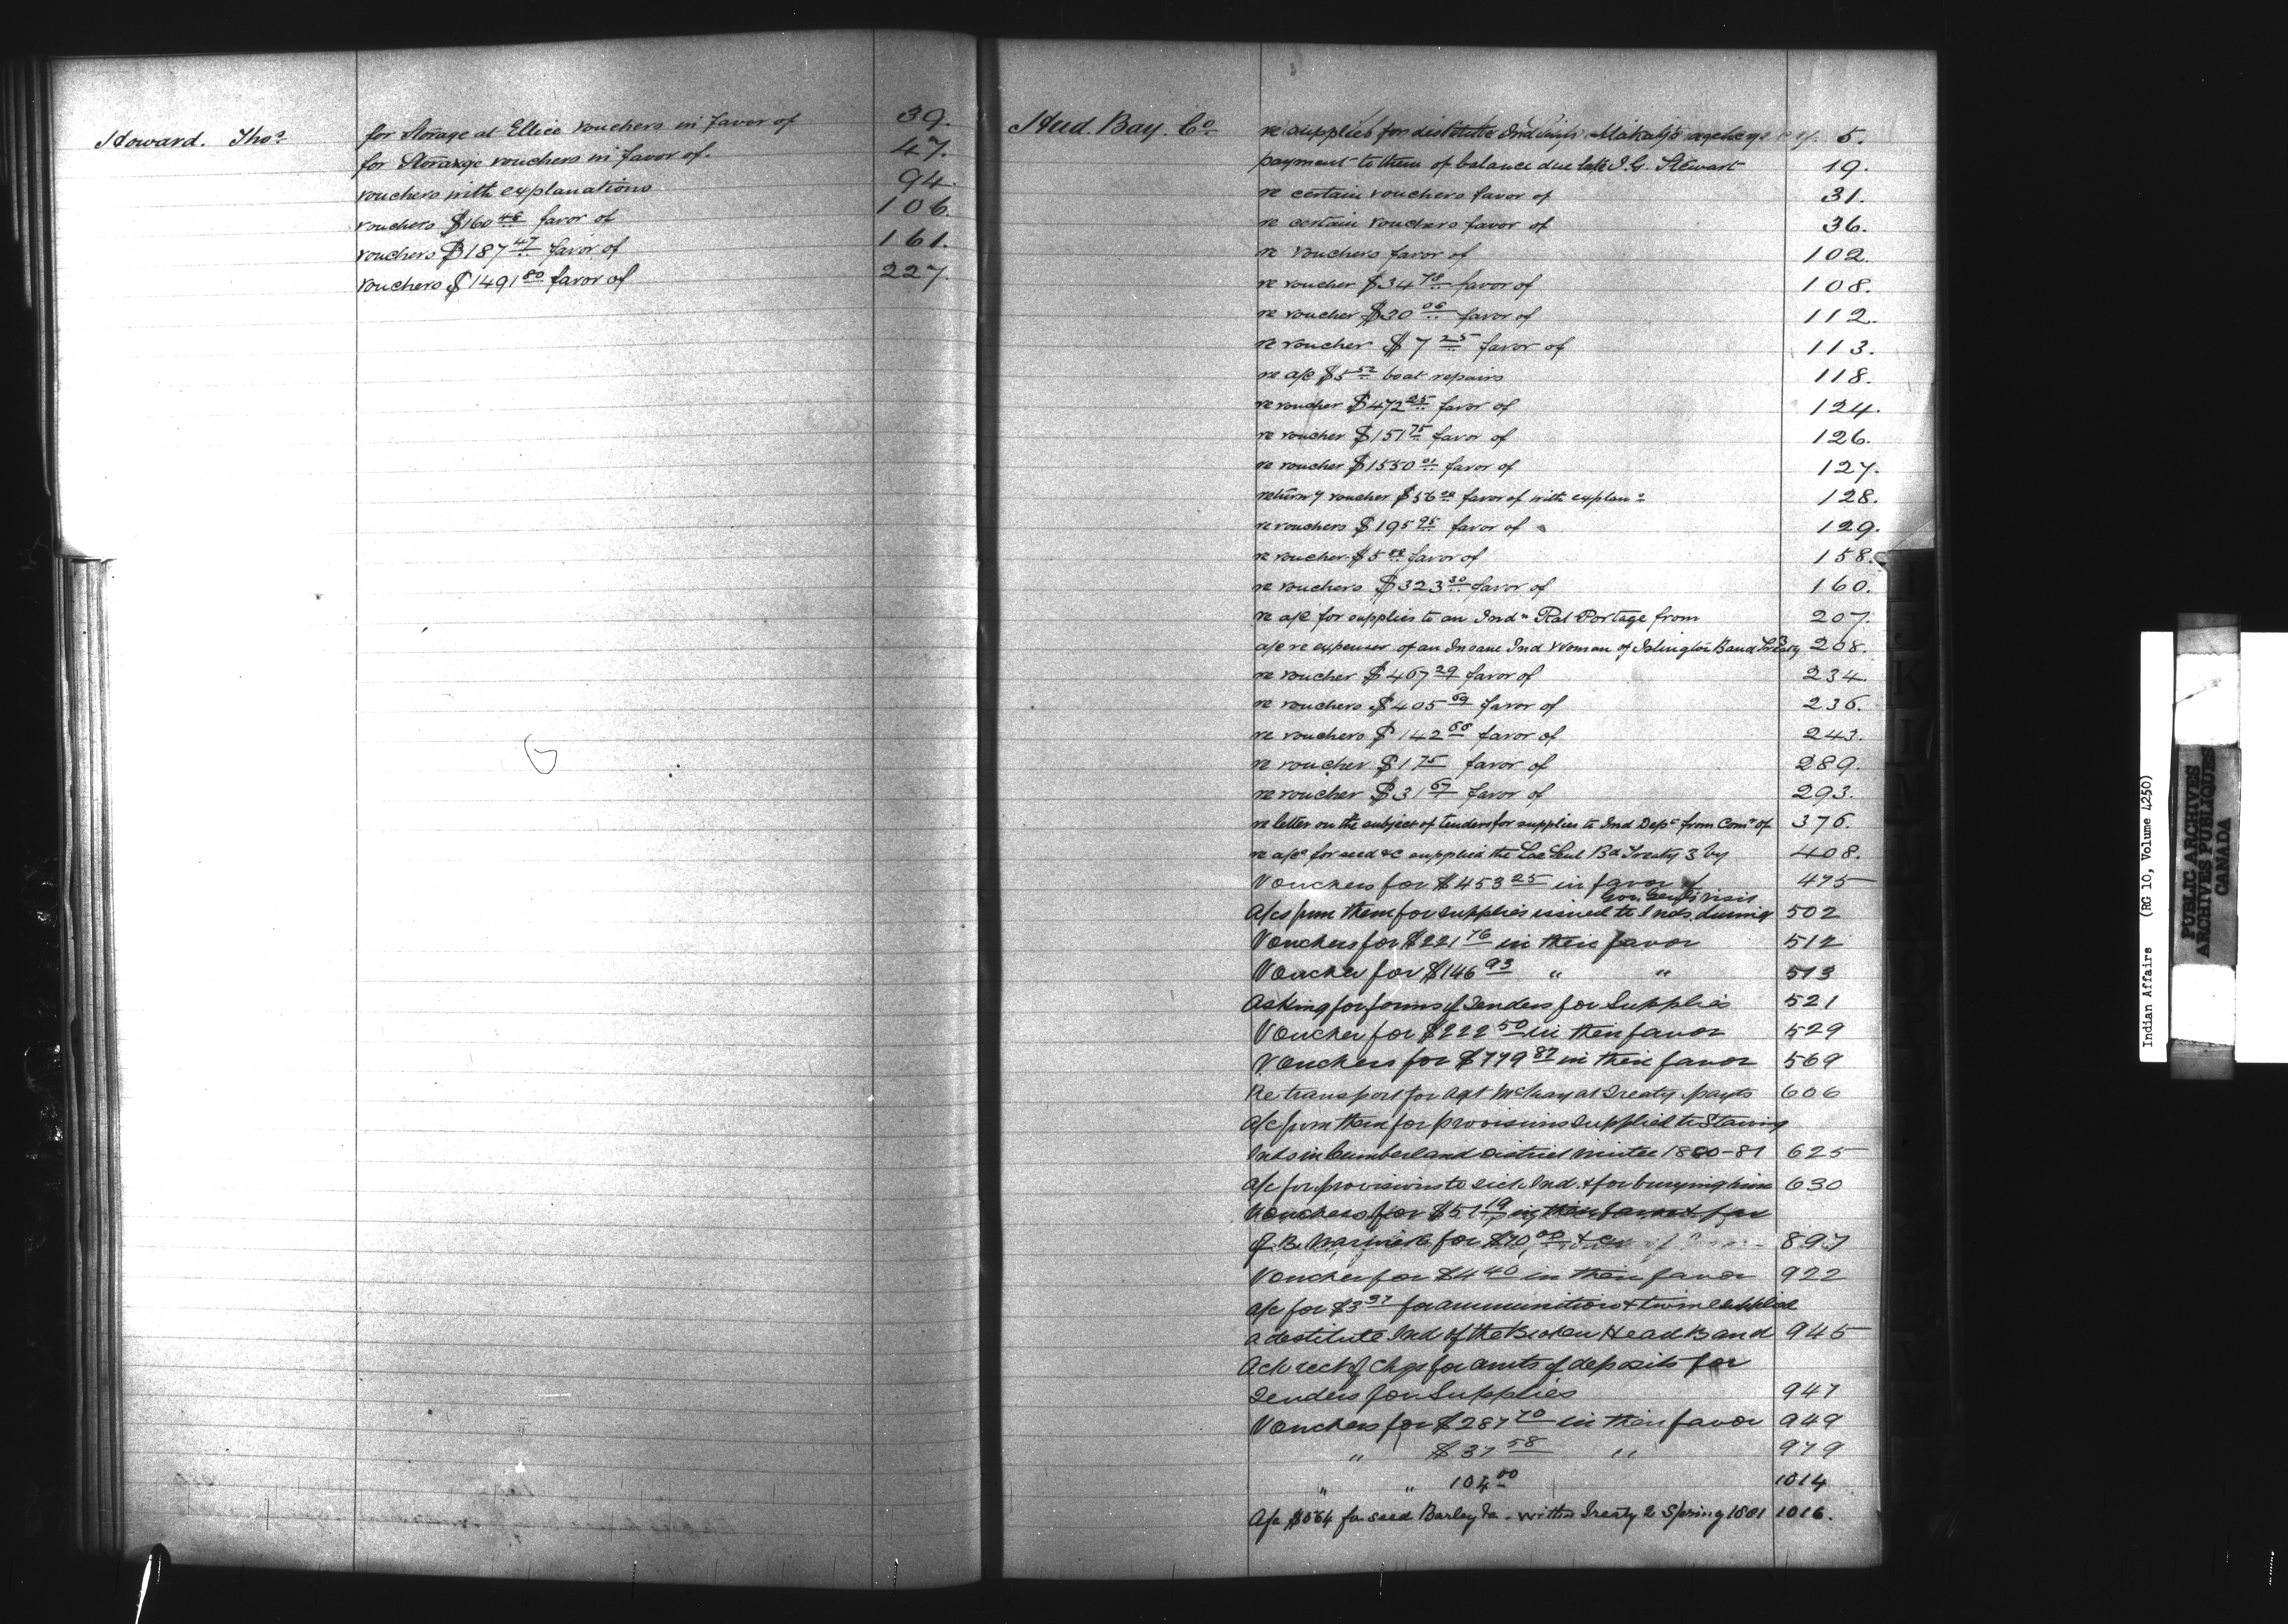 Howard. Thos for Storage at Ellice vouchers in favor of 39.
for Storage vouchers in favor of. 47.
vouchers with explanations 94.
vouchers $160 48 favor of 106.
vouchers $187 47 favor of 161.
vouchers $1491 80 favor of 227.
Hud. Bay. Co. re supplies for destitute Ind 5.
payment to them of balance due late J. G. Stewart 19.
re certain vouchers favor of 31.
re certain vouchers favor of 36.
re vouchers favor of 102.
re voucher $34 78 favor of 108.
re voucher $30 06 favor of 112.
re voucher $7 25 favor of 113.
re a/c $5 52 boat repairs 118.
re voucher $472 25 favor of 124.
re voucher $151 75 favor of 126.
re voucher $1550 01 favor of 127.
return g voucher $56 favor of with explans 128.
re vouchers $195 95 favor of 129.
re voucher $5 favor of 158.
re vouchers $323 30 favor of 160.
re a/c for supplies to an Indn Rat Portage from 207.
a/c re expenses of an Insane Ind Woman of Islington Band Treaty 3 208.
re voucher $467 29 favor of 234.
re vouchers $405 69 favor of 236.
re vouchers $142 68 favor of 243.
re voucher $1 75 favor of 289.
re voucher $31 67 favor of 293.
re letter on the subject of tenders for supplies to Ind Dept from Comr of 376.
re a/cs for seed &c supplied the Lac Seul Bd Treaty 3 by 408.
Vouchers for $453 25 in favor of 475
Gov Genl's visit
A/cs from them for supplies issued to Inds. during 502
Vouchers for $221 76 in their favor 512
Voucher for $146 93 " " 513
Asking for forms of Tenders for Supplies 521
Voucher for $222 50 in their favor 529
Vouchers for $779 87 in their favor 569
Re transport for Agt McKay at Treaty payts 606
A/c from them for provisions supplied to Starving
Inds in Cumberland District winter 1880-81 625
A/c for provisions to sick Ind. & for burying him 630
Vouchers for $51 19 in their favor & for
of B. for $70 00 &c 897
Voucher for $4 40 in their favor 922
A/c for $3 37 for ammunition & twine supplied
a destitute Ind of the Broken Head Band 945
Ack rect of Chqs for amts of deposits for
Tenders for Supplies 947
Vouchers for $287 70 in their favor 949
" $37 58 " 979
" " 104 00 1014
A/c $564 for seed Barley &c - within Treaty 2 Spring 1881 1016.
Indian Affairs (RG 10, Volume 4250)
PUBLIC ARCHIVES
ARCHIVES PUBLIQUES
CANADA